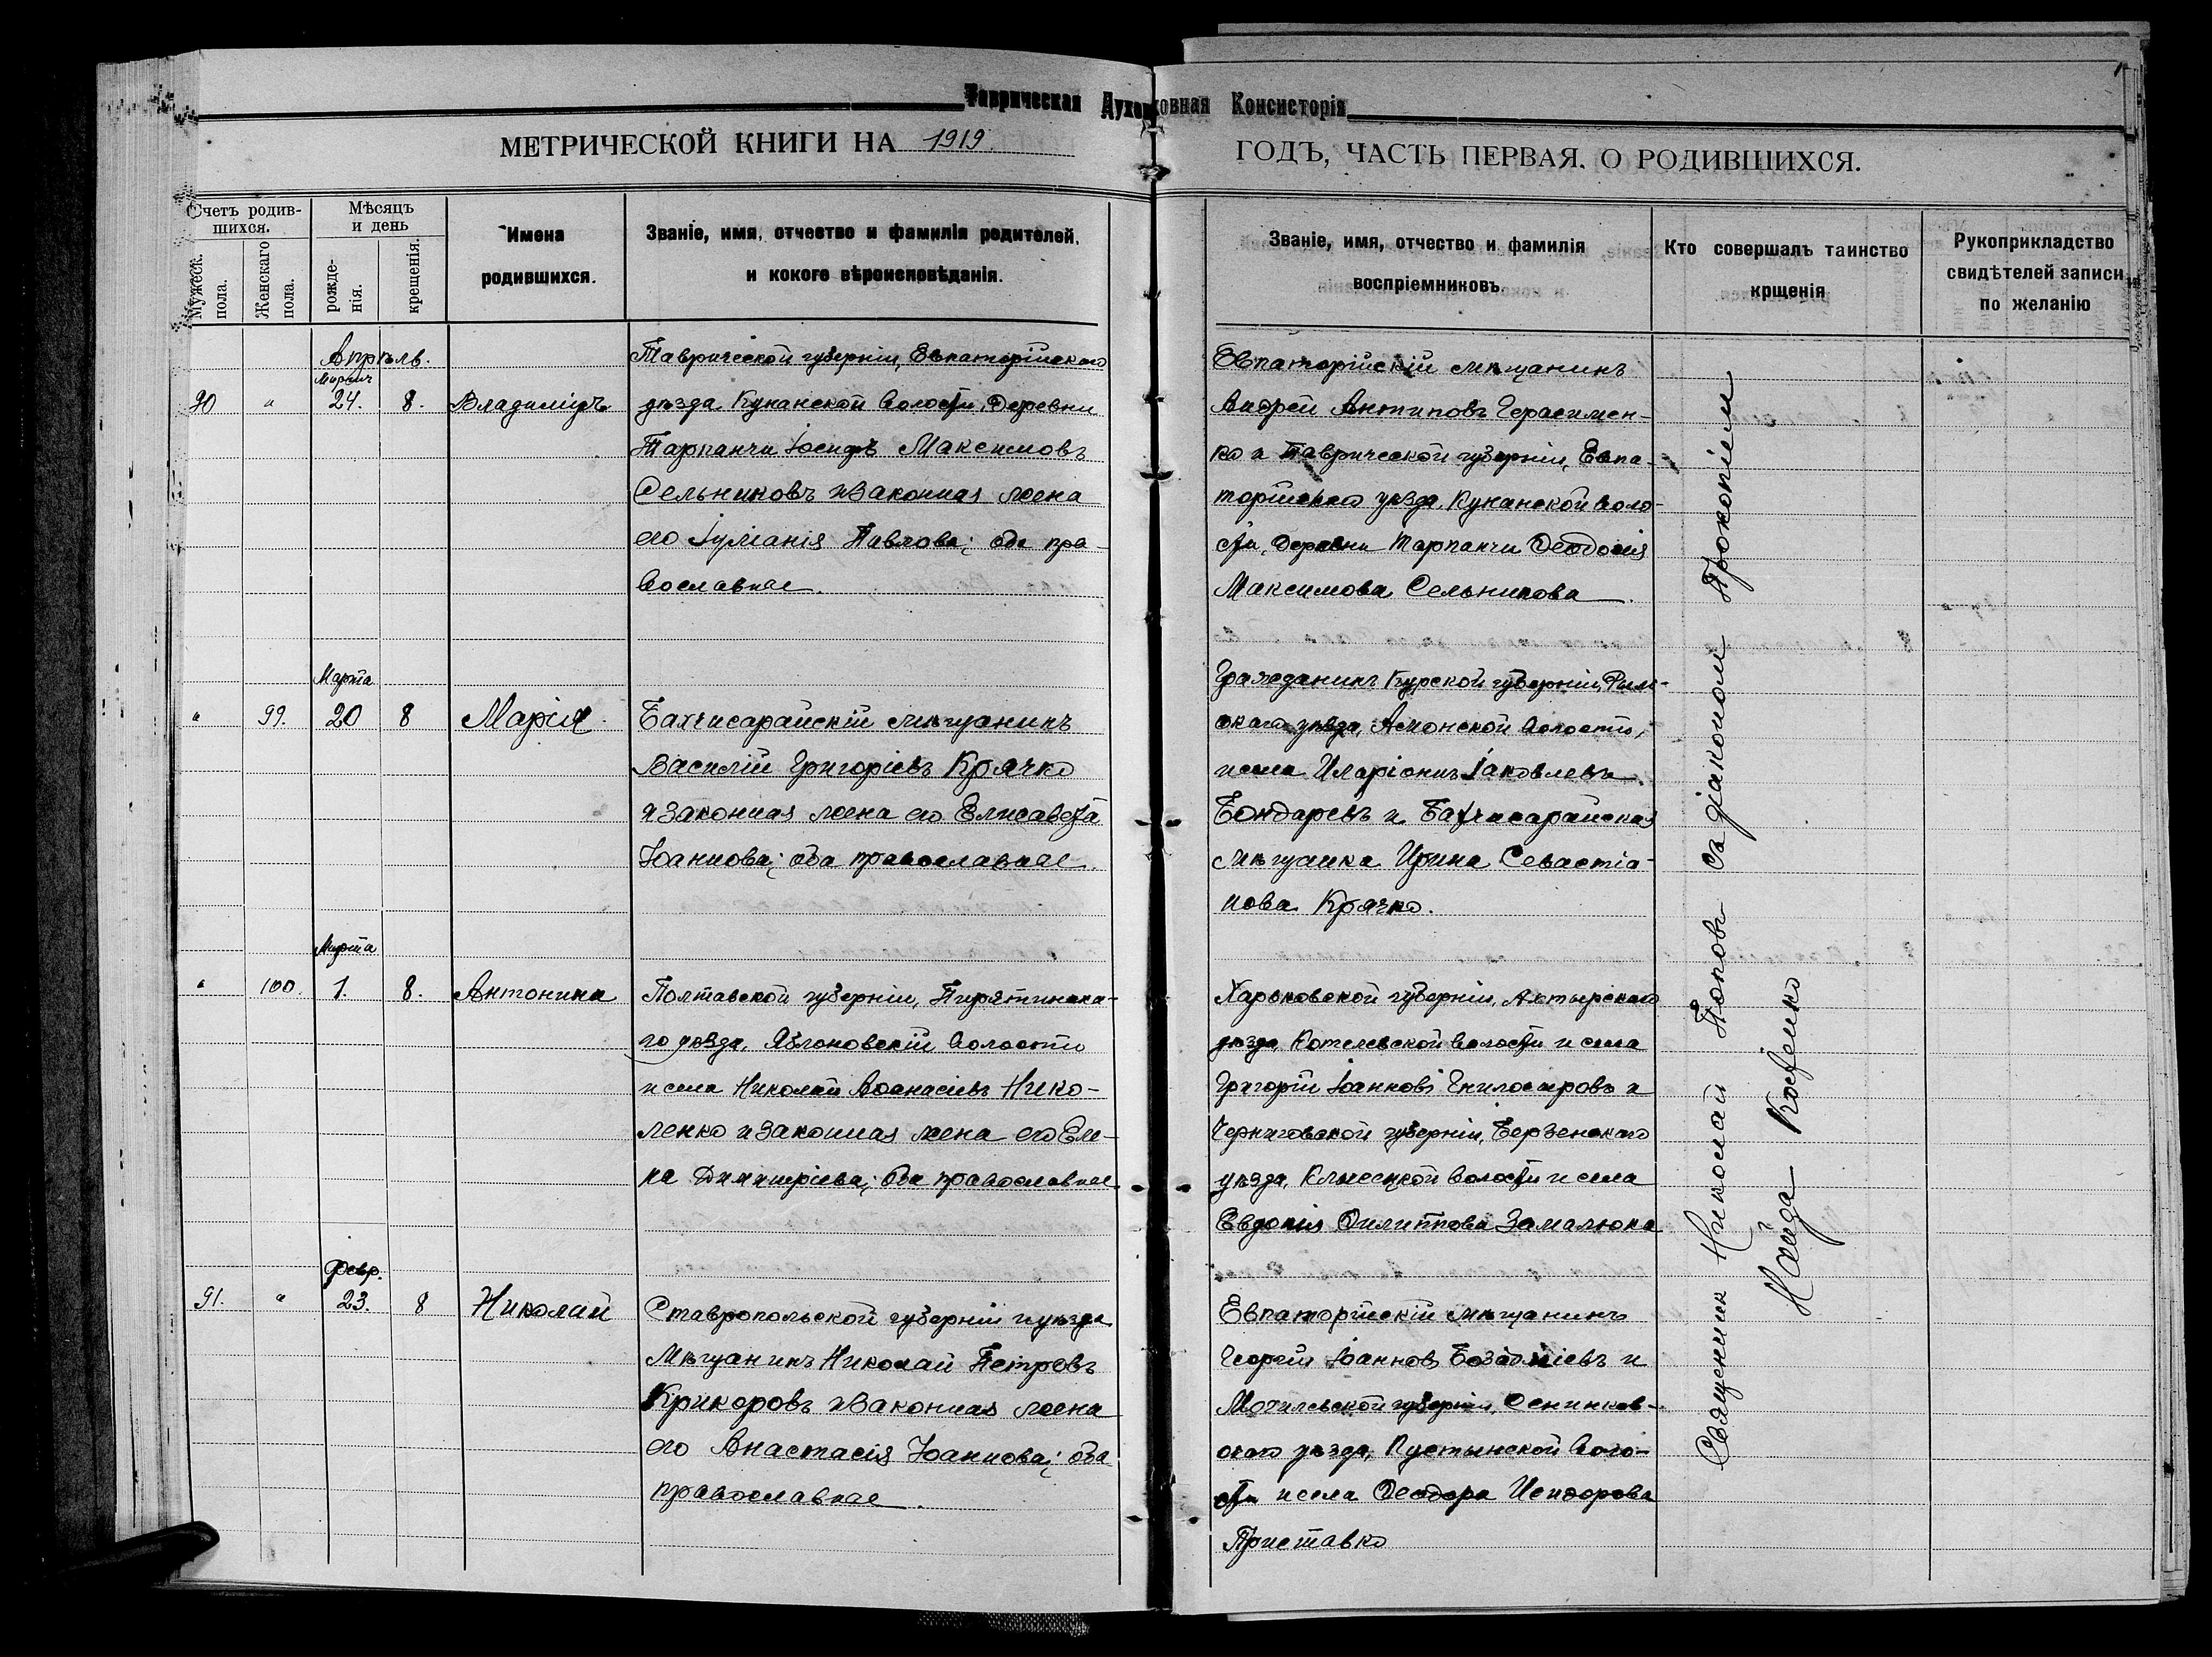 Таврическая Духовная Консисторія
МЕТРИЧЕСКОЙ КНИГИ НА 1919. ГОДЪ, ЧАСТЬ ПЕРВАЯ, О РОДИВШИХСЯ.
Счетъ родив-
шихся.
Мужеск.
пола.
Женскаго
пола.
Мѣсяцъ
и день
рожде-
нія.
крещенія.
Имена
родившихся.
Званіе, имя, отчество и фамилія родителей,
и кокого вѣроисповѣданія.
Званіе, имя, отчество и фамилія
воспріемниковъ.
Кто совершалъ таинство
крщенія
Рукоприкладство
свидѣтелей записи
по желанію
Апрѣль.
Мартъ
90 " 24. 8. Владиміръ
Таврической губерніи, Евпаторійскаго
уѣзда, Кунанской волости, Деревни
Тарпанчи Іосифъ Максимовъ
Сельниковъ и законная жена
его Іуліанія Павлова; оба пра-
вославные.
Евпаторійскій мѣщанинъ
Андрей Антиповъ Герасимен-
ко и Таврической губерніи, Евпа-
торійскаго уѣзда, Кунанской воло-
сти, деревни Тарпанчи Ѳеодосія
Максимова Сельникова
Марта
" 99. 20 8 Марія
Бахчисарайскій мѣщанинъ
Василій Григоріевъ Крячко
и законная жена его Елисавета
Іоаннова; оба православные.
Гражданинъ Курской губерніи, Рыль-
скаго уѣзда, Амонской волости,
и села Иларіонъ Іаковлевъ
Бондаревъ и Бахчисарайская
мѣщанка Ирина Севастіа-
нова Крячко.
Марта
" 100. 1. 8. Антонина
Полтавской губерніи, Пирятинска-
го уѣзда, Яблоновскій волости
и села Николай Аѳанасіевъ Нико-
ленко и законная жена его Еле-
на Димитріева; оба православные
Харьковской губерніи, Ахтырскаго
уѣзда, Котелевской волости и села
Григорій Іоанновъ Гнилостровъ и
Черниговской губерніи, Берзенскаго
уѣзда, волости и села
Евдокія Филиппова Замалюка
Февр.
91. " 23. 8 Николай
Ставропольской губерніи и уѣзда
Мѣщанинъ Николай Петровъ
Крикоровъ и законная жена
его Анастасія Іоаннова; оба
православные.
Евпаторійскій мѣщанинъ
Георгій Іоанновъ и
Могилевской губерніи, Сеннинков-
скаго уѣзда, Пустынской воло-
сти и села Ѳеодора Исидорова
Приставко
Священник Николай Поповъ съ діакономъ Прокопіем
Найда Костенко